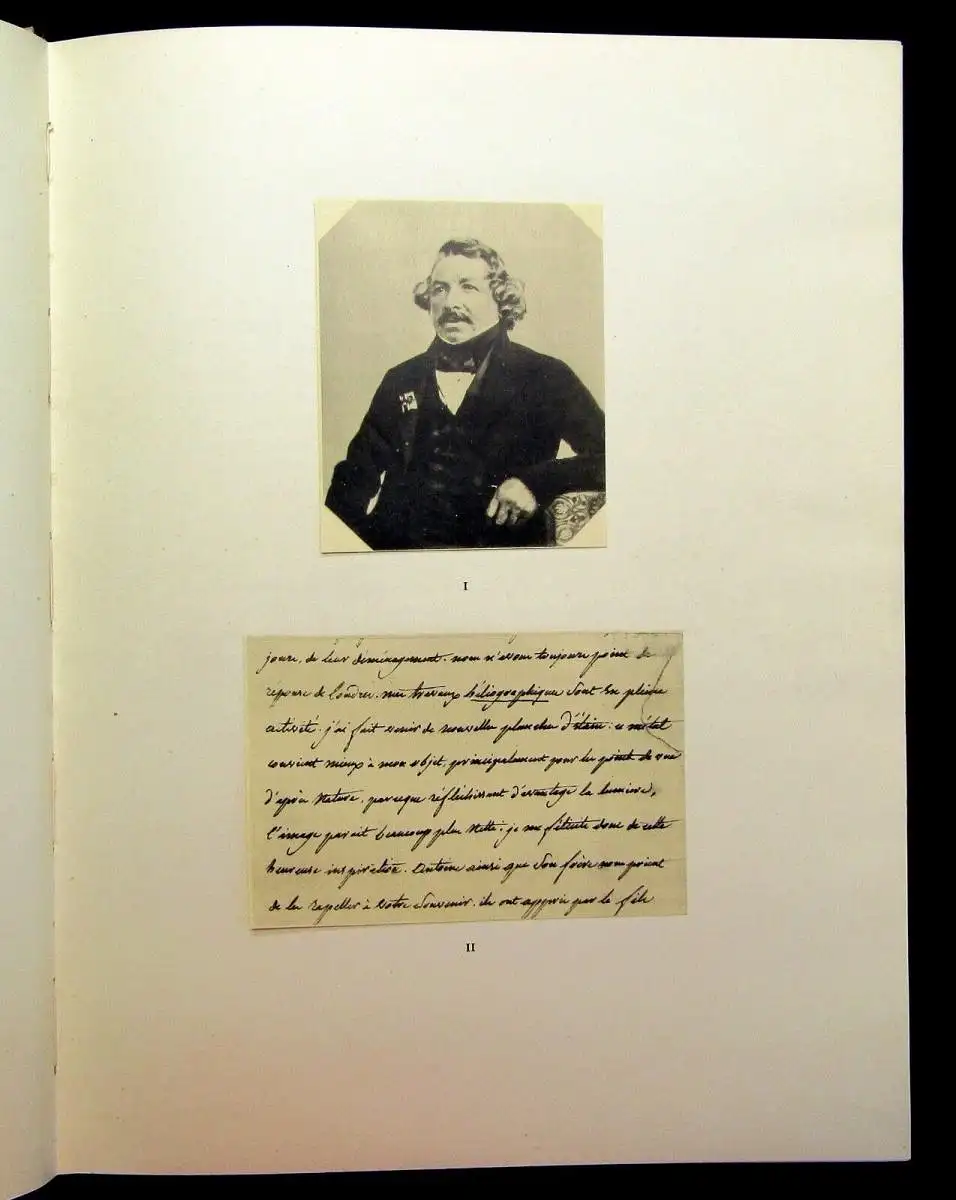 I
jours, de leur déménagement. nous n'avons toujours point de
réponse de Londres. mes travaux héliographiques sont en pleine
activité. j'ai fait venir de nouvelles planches d'étain: ce métal
convient mieux à mon objet, principalement pour les points de vue
d'après Nature, parceque réfléchissant d'avantage la lumière,
l'image parait beaucoup plus nette. je me félicite donc de cette
heureuse inspiration. Antoine ainsi que son frère nous prient
de les rappeller à votre souvenir. ils ont appris par le
II